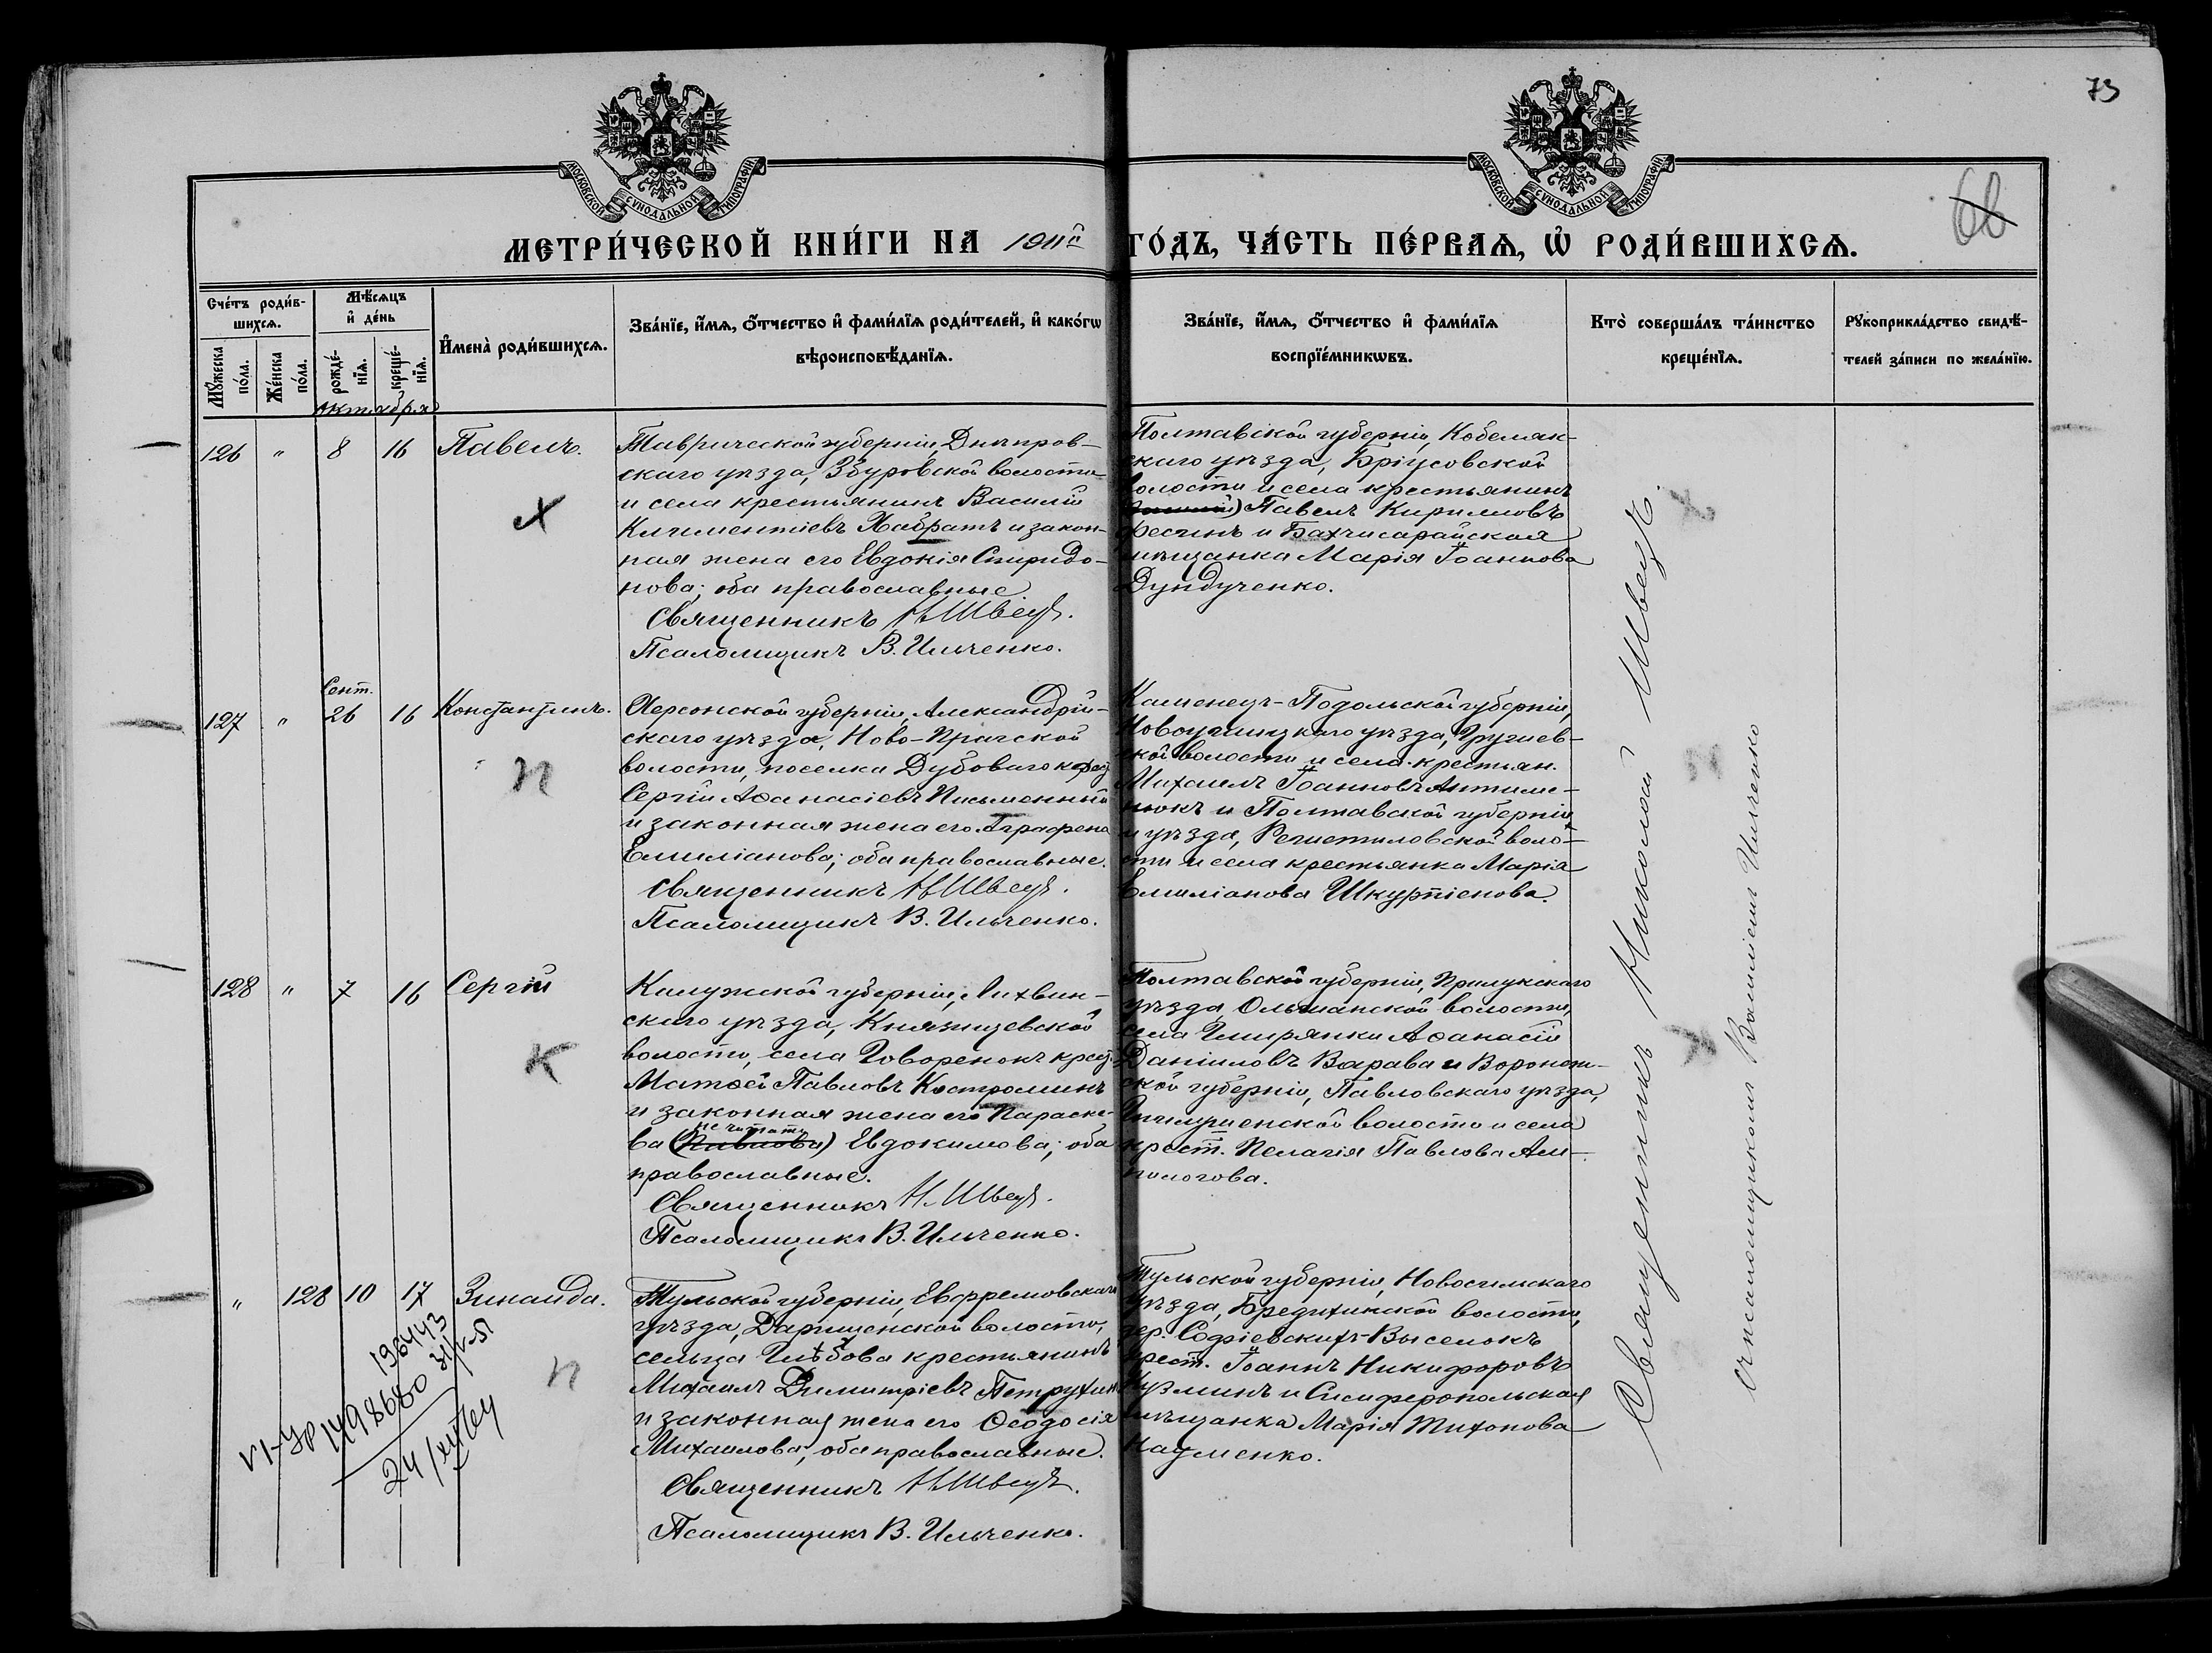 73
68
МОСКОВСКОЙ СѴНОДАЛЬНОЙ ТИПОГРАФІИ
МОСКОВСКОЙ СѴНОДАЛЬНОЙ ТИПОГРАФІИ
МЕТРИ́ЧЕСКОЙ КНИ́ГИ НА 1911й ГО́ДЪ, ЧА́СТЬ ПЕ́РВАѦ, Ѡ РОДИ́ВШИХСѦ.
Сче́тъ роди́в-
шихсѧ.
Мꙋжеска по́ла.
Же́нска по́ла.
Мѣ́сѧцъ
и҆ де́нь
рожде́-
нїѧ.
креще́-
нїѧ.
И҆мена̀ роди́вшихсѧ.
Зва́нїе, и҆́мѧ, ѻ҆́тчество и҆ фами́лїѧ роди́телей, и҆ како́гѡ
вѣроисповѣ́данїѧ.
Зва́нїе, и҆́мѧ, ѻ҆́тчество и҆ фами́лїѧ
воспрїе́мникѡвъ.
Кто̀ соверша́лъ та́инство
креще́нїѧ.
Рꙋкоприкла́дство свидѣ́-
телей за́писи по жела́нїю.
октября
126 " 8 16 Павелъ.
Таврической губерніи, Днѣпров-
скаго уѣзда, Збуровской волости
и села крестьянинъ Василій
Климентіевъ Хабратъ и закон-
ная жена его Евдокія Спиридо-
нова; оба православные
Священникъ Н Швецъ.
Псаломщикъ В. Ильченко.
Полтавской губерніи, Кобеляк-
скаго уѣзда, Бріусовской
волости и села крестьянинъ
Павелъ Кирилловъ
Фесинъ и Бахчисарайская
мѣщанка Марія Іоаннова
Дундученко.
Сент.
127 " 26 16 Константинъ.
Херсонской губерніи, Александрій-
скаго уѣзда, Ново-Прагской
волости, поселка Дубоваго крест.
Сергій Аѳанасіевъ Письменный
и законная жена его Аграфена
Емиліанова; оба православные.
Священникъ Н Швецъ.
Псаломщикъ В. Ильченко.
Каменецъ-Подольской губерніи,
Новоушицкаго уѣзда,
волости и села крестьян.
Михаилъ Іоанновъ Антими-
нюкъ и Полтавской губерніи
и уѣзда, Решетиловской воло-
сти и села крестьянка Марія
Емиліанова Шкурпіенова.
128 " 7 16 Сергій
Калужской губерніи, Лихвин-
скаго уѣзда, Княжищевской
волости, села Говоренокъ крест.
Матѳей Павловъ Костроминъ
и законная жена его Параске-
не читать
ва (Павлова) Евдокимова; оба
православные.
Священникъ Н. Швецъ.
Псаломщикъ В. Ильченко.
Полтавской губерніи, Прилукскаго
уѣзда, Ольшанской волости,
села Гмирянки Аѳанасій
Даніиловъ Варава и Воронеж-
ской губерніи, Павловскаго уѣзда,
волости и села
крест. Пелагія Павлова Али-
пологова.
" 128 10 17 Зинаида.
Тульской губерніи, Евфремовскаго
уѣзда, Дарищенской волости,
сельца Глѣбова крестьянинъ
Михаилъ Димитріевъ Петрухинъ
и законная жена его Ѳеодосія
Михаилова, оба православные.
Священникъ Н Швецъ.
Псаломщикъ В. Ильченко.
Тульской губерніи, Новосильскаго
уѣзда, Бредихинской волости,
дер. Софіевскихъ-Выселокъ
крест. Іоаннъ Никифоровъ
Кузминъ и Симферопольская
мѣщанка Марія Тихонова
Науменко.
198443
VI-УР 1498680
24/XII 64
Священникъ Николай Швецъ.
съ псаломщикомъ Василіемъ Ильченко